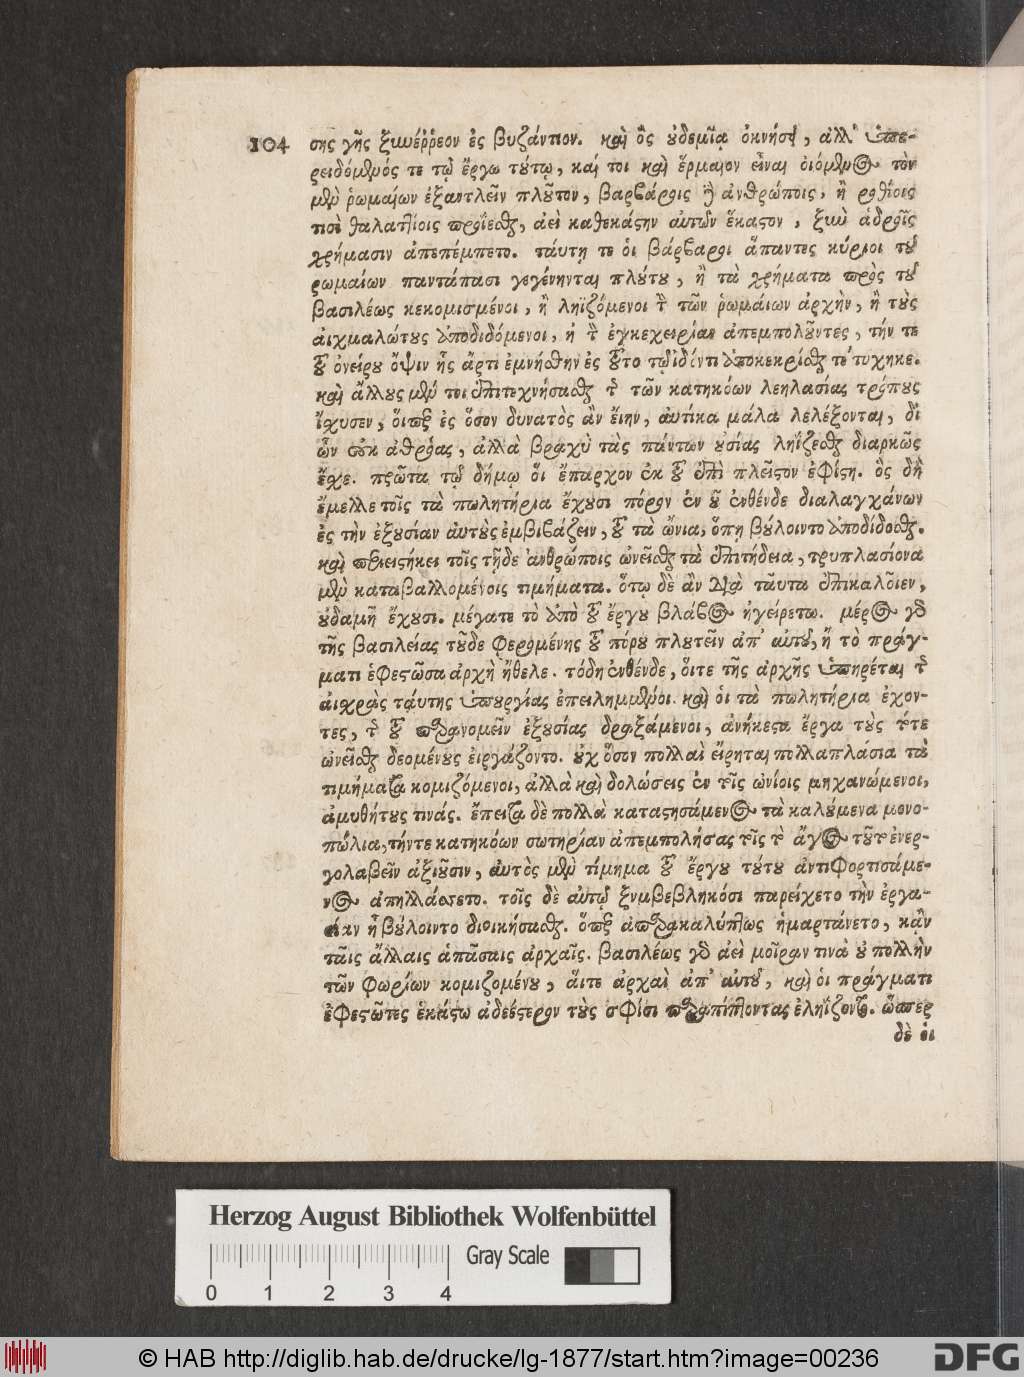 104 σης γῆς ξυνέῤῥεον ἐς βυζάντιον. καὶ ὃς οὐδεμίᾳ ὀκνήσει, ἀλλ' ὑπε-
ρειδόμενός τε τῷ ἔργῳ τούτῳ, καί τοι καὶ ἕρμαιον εἶναι οἰόμενος τὸν
μὲν ῥωμαίων ἐξαντλεῖν πλοῦτον, βαρβάροις δὲ ἀνθρώποις, ἢ ῥοθίοις
τισὶ θαλαττίοις προΐεσθαι, ἀεὶ καθεκάστην αὐτῶν ἕκαστον, ξὺν ἁδροῖς
χρήμασιν ἀπεπέμπετο. ταύτῃ τε οἱ βάρβαροι ἅπαντες κύριοι τοῦ
ῥωμαίων παντάπασι γεγένηνται πλούτου, ἢ τὰ χρήματα πρὸς τοῦ
βασιλέως κεκομισμένοι, ἢ ληϊζόμενοι τὴν τῶν ῥωμαίων ἀρχὴν, ἢ τοὺς
αἰχμαλώτους ἀποδιδόμενοι, ἢ τὴν ἐγκεχειρίαν ἀπεμπολοῦντες, τήν τε
τοῦ ὀνείρου ὄψιν ἧς ἄρτι ἐμνήσθην ἐς τοῦτο τῷ ἰδόντι ἀποκεκρίσθαι τετύχηκε.
καὶ ἄλλους μέν τοι ἐπιτεχνήσασθαι τῆς τῶν κατηκόων λεηλασίας τρόπους
ἴσχυσεν, οἵπερ ἐς ὅσον δυνατὸς ἂν εἴην, αὐτίκα μάλα λελέξονται, δι'
ὧν οὐκ ἀθρόας, ἀλλὰ βραχὺ τὰς πάντων οὐσίας ληΐζεσθαι διαρκῶς
ἔσχε. πρῶτα τῷ δήμῳ οἱ ἔπαρχον ἐκ τοῦ ἐπὶ πλεῖστον ἐφίστη. ὃς δὴ
ἔμελλε τοῖς τὰ πωλητήρια ἔχουσι πόρον ἐν οὗ ἐνθένδε διαλαγχάνων
ἐς τὴν ἐξουσίαν αὐτοὺς ἐμβιβάζειν, τοῦ τὰ ὤνια, ὅπῃ βούλοιντο ἀποδίδοσθαι.
καὶ περιειστήκει τοῖς τῇδε ἀνθρώποις ὠνεῖσθαι τὰ ἐπιτήδεια, τριπλασίονα
μὲν καταβαλλομένοις τιμήματα. ὅτῳ δὲ ἂν διὰ ταῦτα ἐπικαλοῖεν,
οὐδαμῆ ἔχουσι. μέγα τε τὸ ἀπὸ τοῦ ἔργου βλάβος ἠγείρετω. μέρος γὰρ
τῆς βασιλείας τοῦδε φερομένης τοῦ πόρου πλουτεῖν ἀπ' αὐτοῦ, ἡ τὸ πράγ-
ματι ἐφεστῶσα ἀρχὴ ἤθελε. τόδη ἐνθένδε, οἵτε τῆς ἀρχῆς ὑπηρέται τῆς
αἰσχρᾶς ταύτης ὑπουργίας ἐπειλημμένοι. καὶ οἱ τὰ πωλητήρια ἔχον-
τες, τῆς τοῦ παρανομεῖν ἐξουσίας δραξάμενοι, ἀνήκεστα ἔργα τοὺς τότε
ὠνεῖσθαι δεομένους εἰργάζοντο. οὐχ ὅσον πολλαὶ εἴρηται πολλαπλάσια τὰ
τιμήματα κομιζόμενοι, ἀλλὰ καὶ δολώσεις ἐν τοῖς ὠνίοις μηχανώμενοι,
ἀμυθήτους τινάς. ἔπειτα δὲ πολλὰ καταστησάμενος τὰ καλούμενα μονο-
πώλια, τήντε κατηκόων σωτηρίαν ἀπεμπολήσας τοῖς τὸ ἄγος τοῦτ' ἐνερ-
γολαβεῖν ἀξιοῦσιν, αὐτὸς μὲν τίμημα τοῦ ἔργου τούτου ἀντιφορτισάμε-
νος ἀπηλλάσσετο. τοῖς δὲ αὐτῷ ξυμβεβληκόσι παρείχετο τὴν ἐργα-
σίαν ᾗ βούλοιντο διοικήσασθαι. ὅπερ ἀπαρακαλύπτως ἡμαρτάνετο, κᾂν
ταῖς ἄλλαις ἁπάσαις ἀρχαῖς. βασιλέως γὰρ ἀεὶ μοῖραν τινὰ οὐ πολλὴν
τῶν φωρίων κομιζομένου, αἵτε ἀρχαὶ ἀπ' αὐτοῦ, καὶ οἱ πράγματι
ἐφεστῶτες ἑκάστω ἀδεέστερον τοὺς σφίσι παραπίπτοντας ἐληΐζοντο. ὥσπερ
δὲ οἱ
Herzog August Bibliothek Wolfenbüttel
Gray Scale
0 1 2 3 4
© HAB http://diglib.hab.de/drucke/lg-1877/start.htm?image=00236
DFG